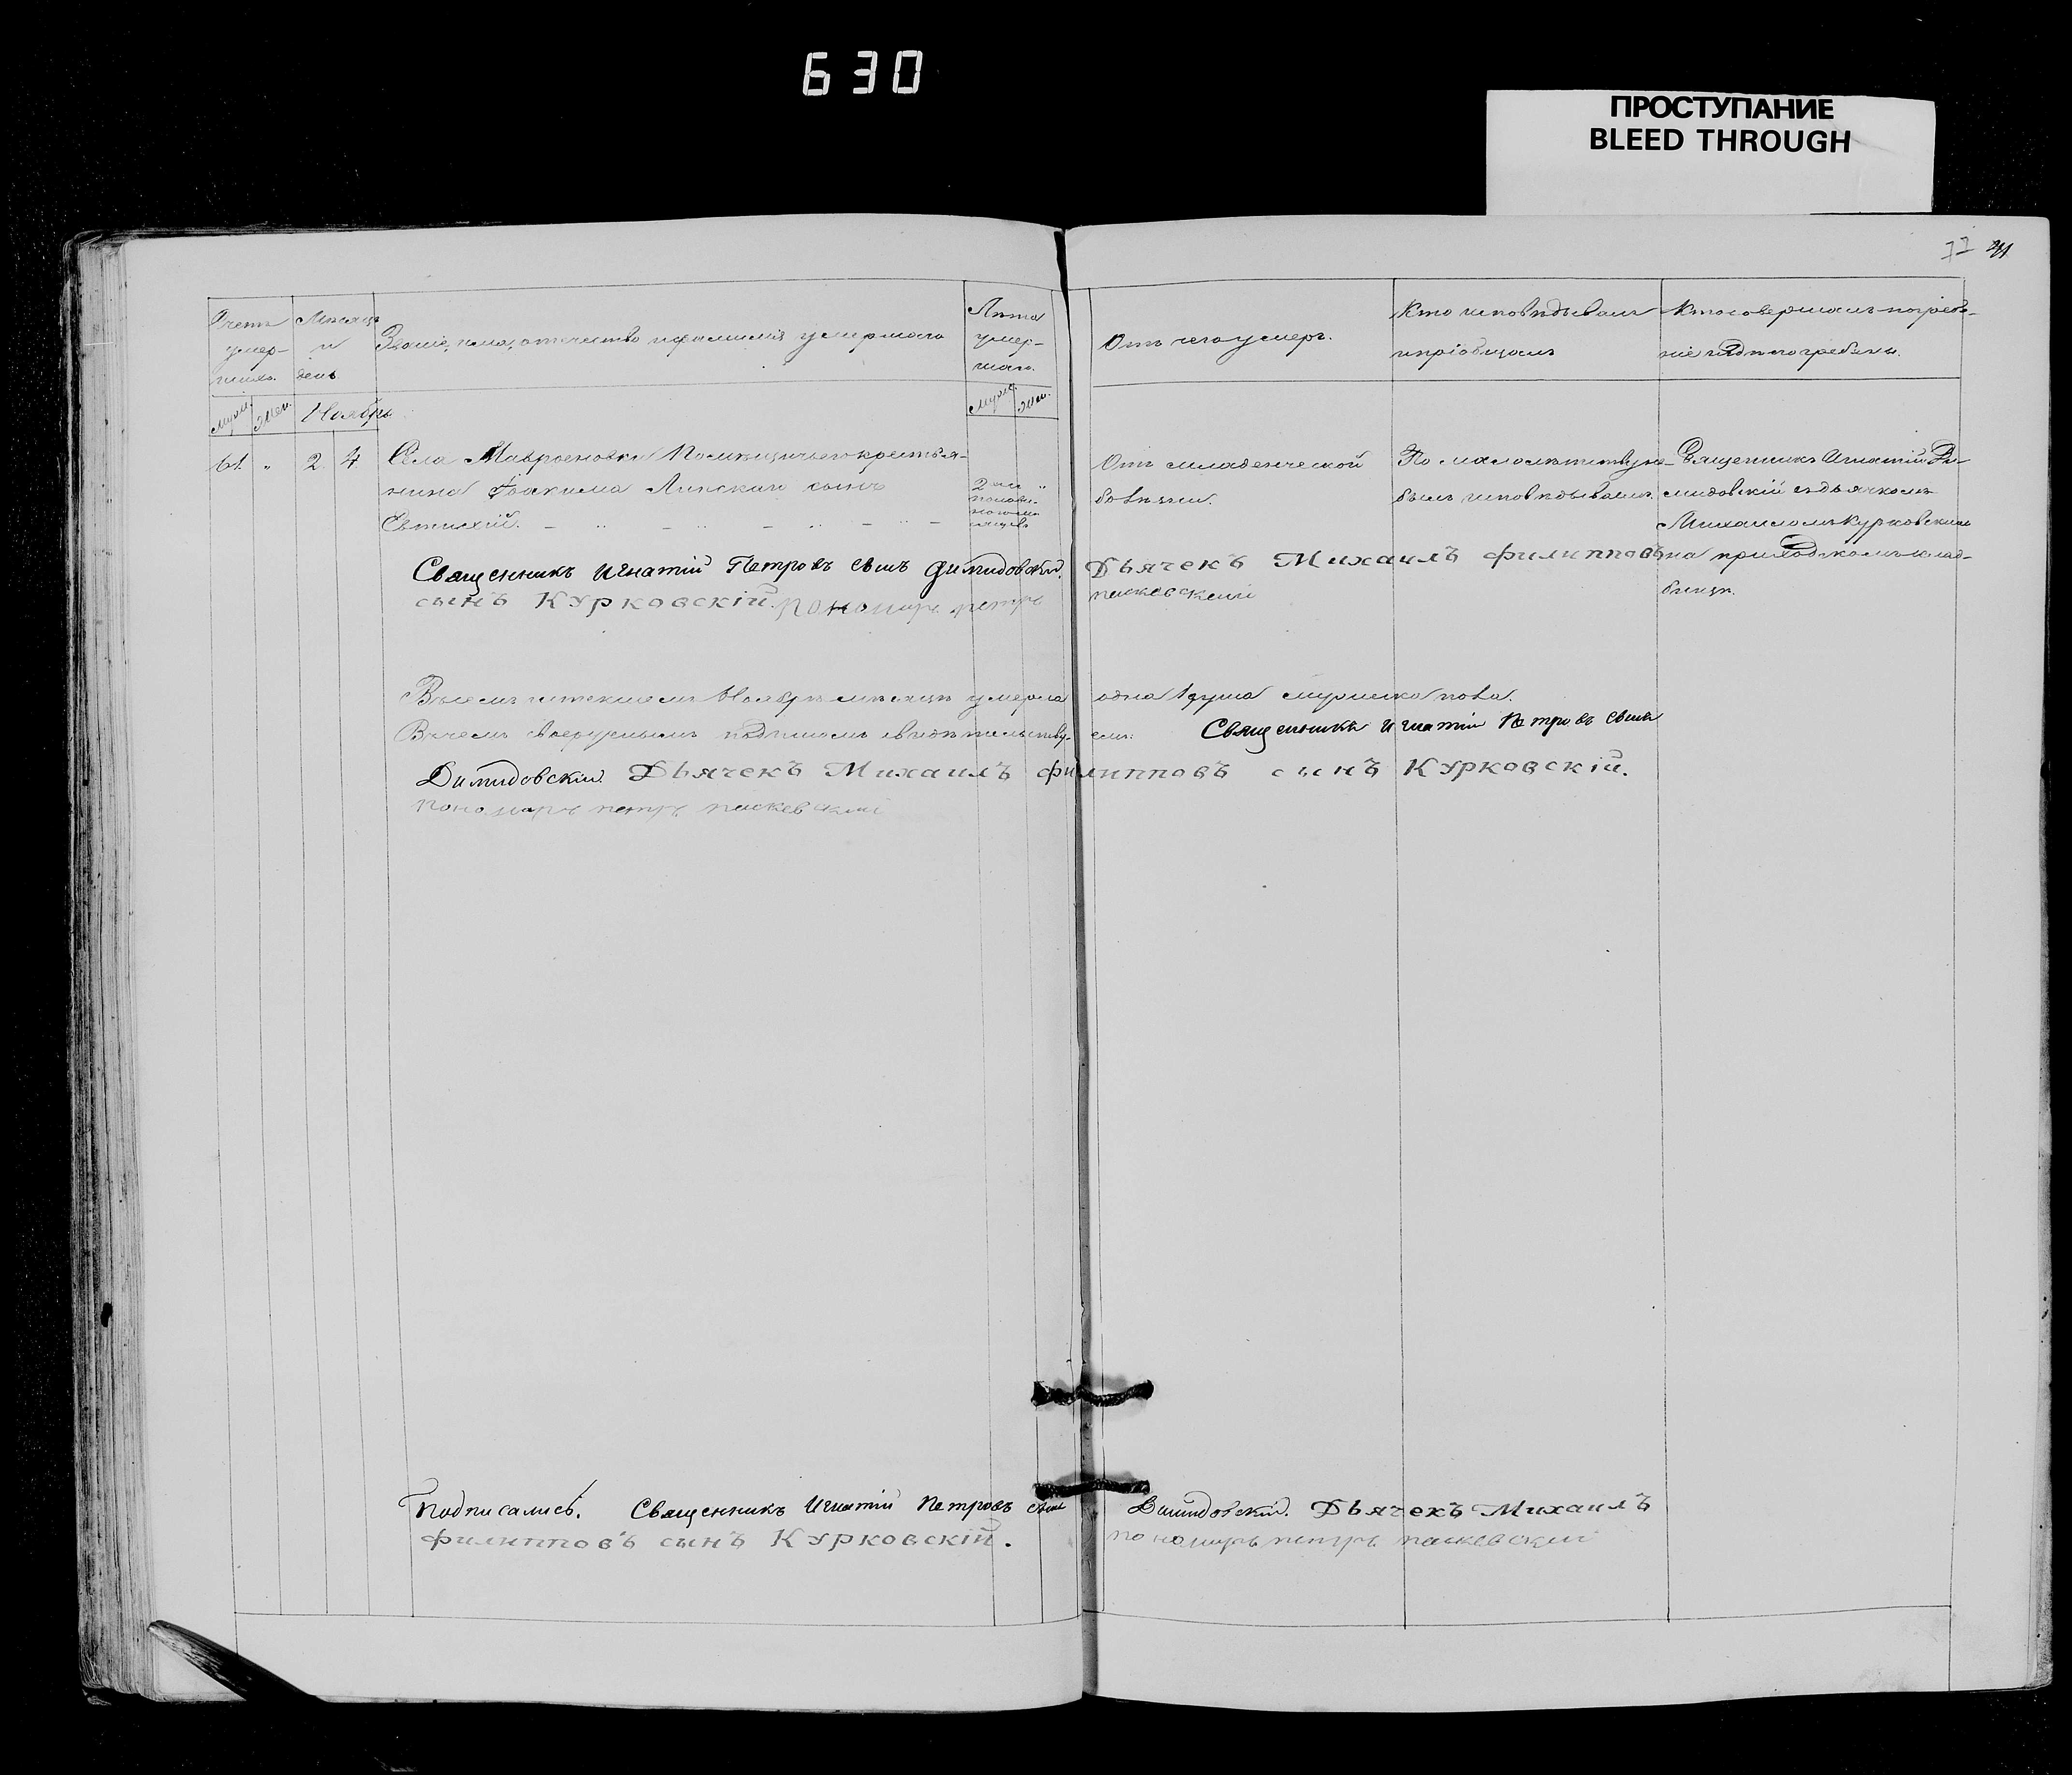 630
ПРОСТУПАНИЕ
BLEED THROUGH
77
Счетъ умер- шихъ.
Мѣсяцъ и день
Званіе, имя, отчество и фамилія умершаго
Лѣта умер- шаго.
Отъ чего умеръ.
Кто исповѣдывалъ и пріобщалъ
Кто совершалъ погребе- ніе и гдѣ погребены.
Муж. Жен. Ноябрь Муж. Жен.
61. " 2. 4.
Села Мавроеновки Помѣщичьего крестья-
нина Іоакима Липскаго сынъ
Евтихій.
2 хъ съ половиною мѣсяцевъ "
Отъ младенческой
болѣзни.
По малолѣтству не
былъ исповѣдыванъ.
Священникъ Игнатій Ди-
мидовскій съ дьячкомъ
Михаиломъ Курковскимъ
на приходскомъ клад-
бищѣ.
Священникъ Игнатій Петровъ сынъ Димидовскій. Дьячекъ Михаилъ Филипповъ
сынъ Курковскій. Пономарь петръ паскевский
Всего въ Ноябрѣ мѣсяцѣ умерла одна 1 душа мужеска пола.
В чемъ своеручнымъ подписомъ свидѣтельству- емъ: Священникъ Игнатій Петровъ сынъ
Димидовскій Дьячекъ Михаилъ Филипповъ сынъ Курковскій.
Пономарь петръ паскевский
Подписались. Священникъ Игнатій Петровъ сынъ Димидовскій. Дьячекъ Михаилъ
Филипповъ сынъ Курковскій. пономарь петръ паскевский